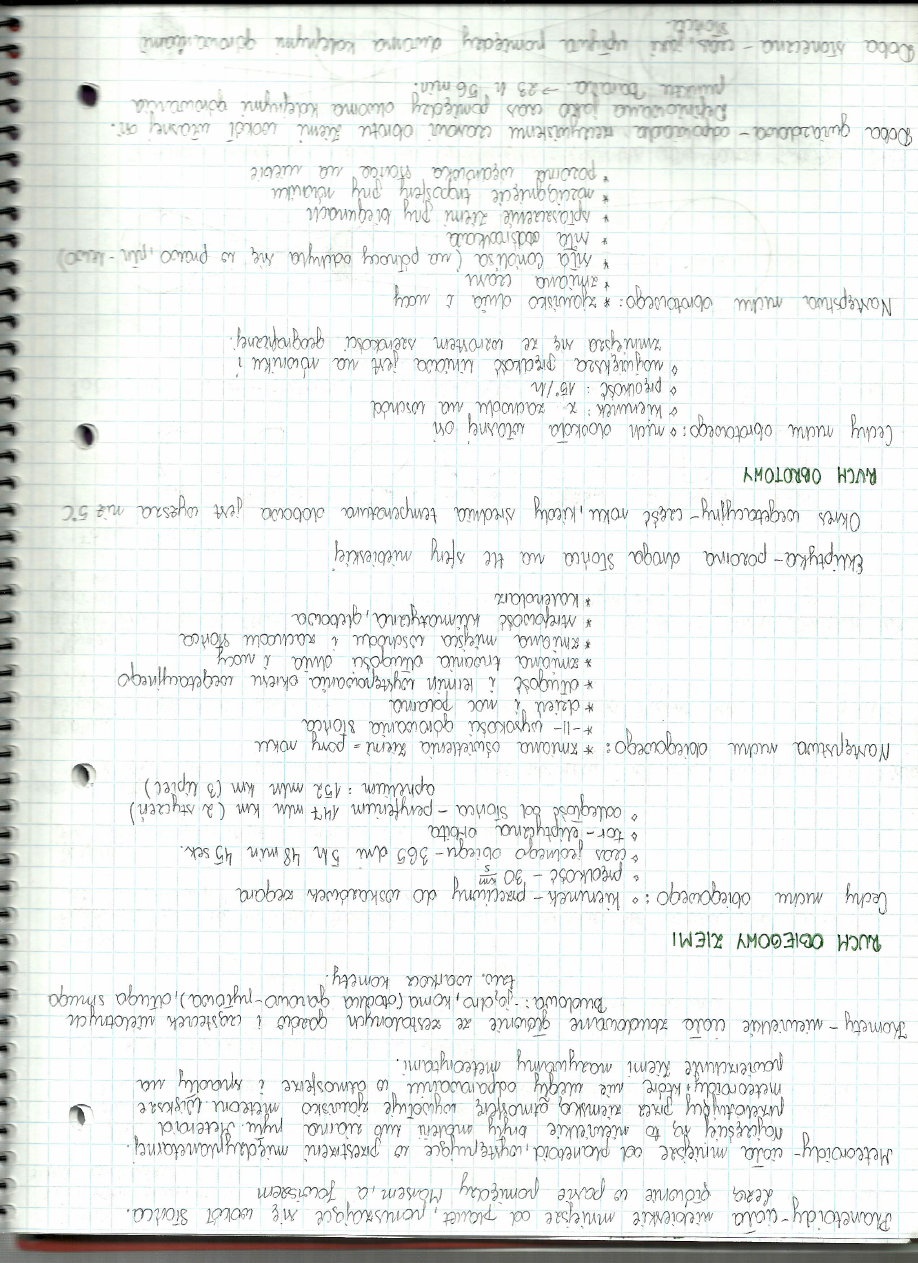 Planetoidy - ciała niebieskie mniejsze od planet, poruszające się wokół Słońca.
Leżą głównie w pasie pomiędzy Marsem, a Jowiszem
Meteoroidy - ciała mniejsze od planetoid, występujące w przestrzeni międzyplanetarnej.
najczęściej są to niewielkie bryły materii lub ziarna pyłu. Meteoroid
przelatujący przez ziemską atmosferę wywołuje zjawisko meteoru. Większe
meteoroidy, które nie uległy odparowaniu w atmosferze i spadły na
powierzchnię Ziemi nazywamy meteorytami.
Komety - niewielkie ciała zbudowane głównie ze zestalonych gazów i cząsteczek nielotnych
Budowa: jądro, koma (otoczka gazowo-pyłowa), długa smuga
tzw. warkocz komety.
RUCH OBIEGOWY ZIEMI
Cechy ruchu obiegowego: ∘ kierunek - przeciwny do wskazówek zegara
∘ prędkość - 30 km/s
∘ czas jednego obiegu - 365 dni 5h 48 min 45 sek.
∘ tor - eliptyczna orbita
∘ odległość od Słońca - peryhelium 147 mln km (2 styczeń)
aphelium: 152 mln km (3 lipiec)
Następstwa ruchu obiegowego: * zmiana oświetlenia Ziemi = pory roku
* -II- wysokości górowania słońca
* dzień i noc polarna
* długość i termin występowania okresu wegetacyjnego
* zmiana trwania długości dnia i nocy
* zmiana miejsca wschodu i zachodu słońca
* strefowość klimatyczna, glebowa
* kalendarz
Ekliptyka - pozorna droga Słońca na tle sfery niebieskiej
Okres wegetacyjny - część roku, kiedy średnia temperatura dobowa jest wyższa niż 5°C
RUCH OBROTOWY
Cechy ruchu obrotowego: ∘ ruch dookoła własnej osi
∘ kierunek: z zachodu na wschód
∘ prędkość: 15°/h
∘ największa prędkość liniowa jest na równiku i
zmniejsza się ze wzrostem szerokości geograficznej.
Następstwa ruchu obrotowego: * zjawisko dnia i nocy
* zmiana czasu
* siła Coriolisa (na północy odchyla się w prawo, płn - lewo)
* siła odśrodkowa
* spłaszczenie Ziemi przy biegunach
* rozciągnięcie troposfery przy równiku
* pozorna wędrówka słońca na niebie
Doba gwiazdowa - odpowiada rzeczywistemu czasowi obrotu Ziemi wokół własnej osi.
Definiowana jako czas pomiędzy dwoma kolejnymi górowania
punktu Barana → 23 h 56 min.
Doba słoneczna - czas, jaki upływa pomiędzy dwoma kolejnymi górowaniami
słońca.